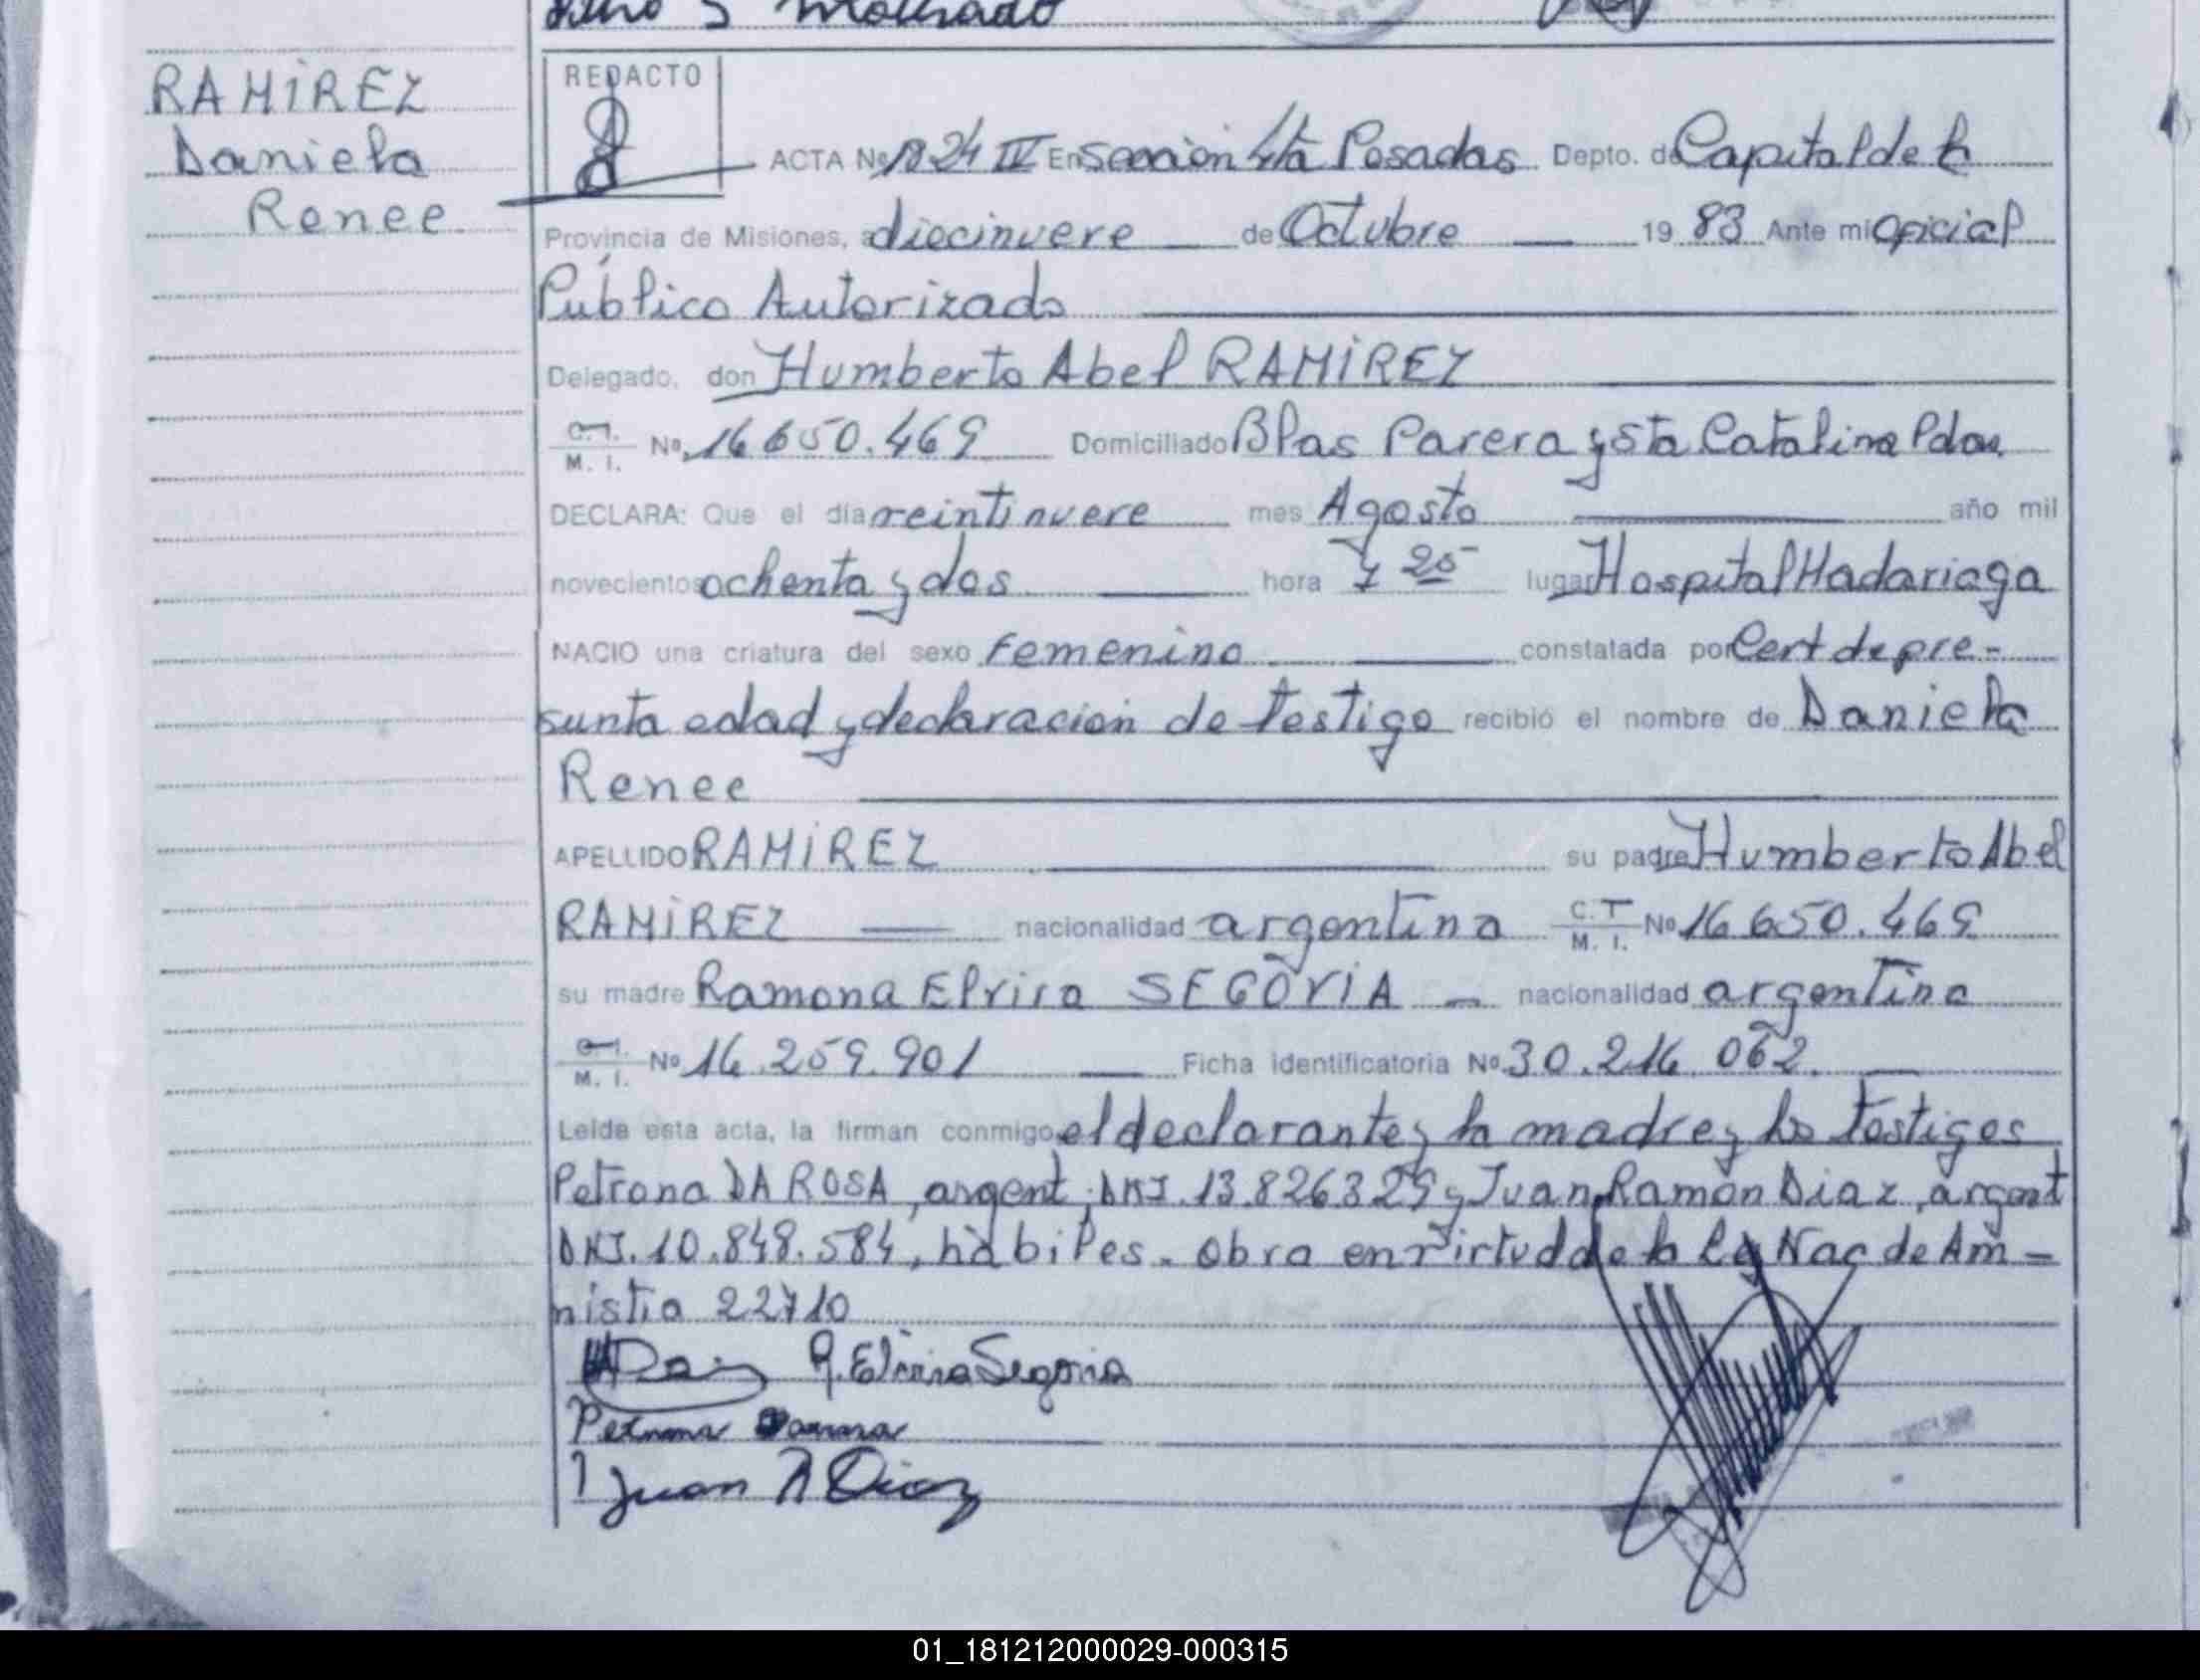 RAMIREZ
Daniela
Renee.
REDACTO
ACTA Nº 1824 IV En Sección 4ta Posadas Depto. de Capital de la
Provincia de Misiones, a diecinueve de Octubre 19 83 Ante mi Oficial
Público Autorizado
Delegado, don Humberto Abel RAMIREZ
C.I. M. I. Nº 16.650.469 Domiciliado Blas Parera y Sta Catalina Pdas.
DECLARA: Que el día veintinueve mes Agosto año mil
novecientos ochenta y dos hora 7 25 lugar Hospital Madariaga
NACIO una criatura del sexo femenino constatada por Cert de pre-
sunta edad y declaración de testigo recibió el nombre de Daniela
Renee
APELLIDO RAMIREZ su padre Humberto Abel
RAMIREZ nacionalidad argentina C.I. M. I. Nº 16.650.469
su madre Ramona Elvira SEGOVIA nacionalidad argentina
C.I. M. I. Nº 16.259.901 Ficha identificatoria Nº 30.216.062.
Leída esta acta, la firman conmigo el declarante y la madre y los testigos
Petrona DA ROSA, argent, DNI. 13.826329 y Juan Ramón Diaz, argent
DNI. 10.848.584, hábiles. Obra en virtud de la Ley Nac de Am-
nistia 22710
R. Elvira Segovia
Petrona
Juan R Diaz
01_181212000029-000315